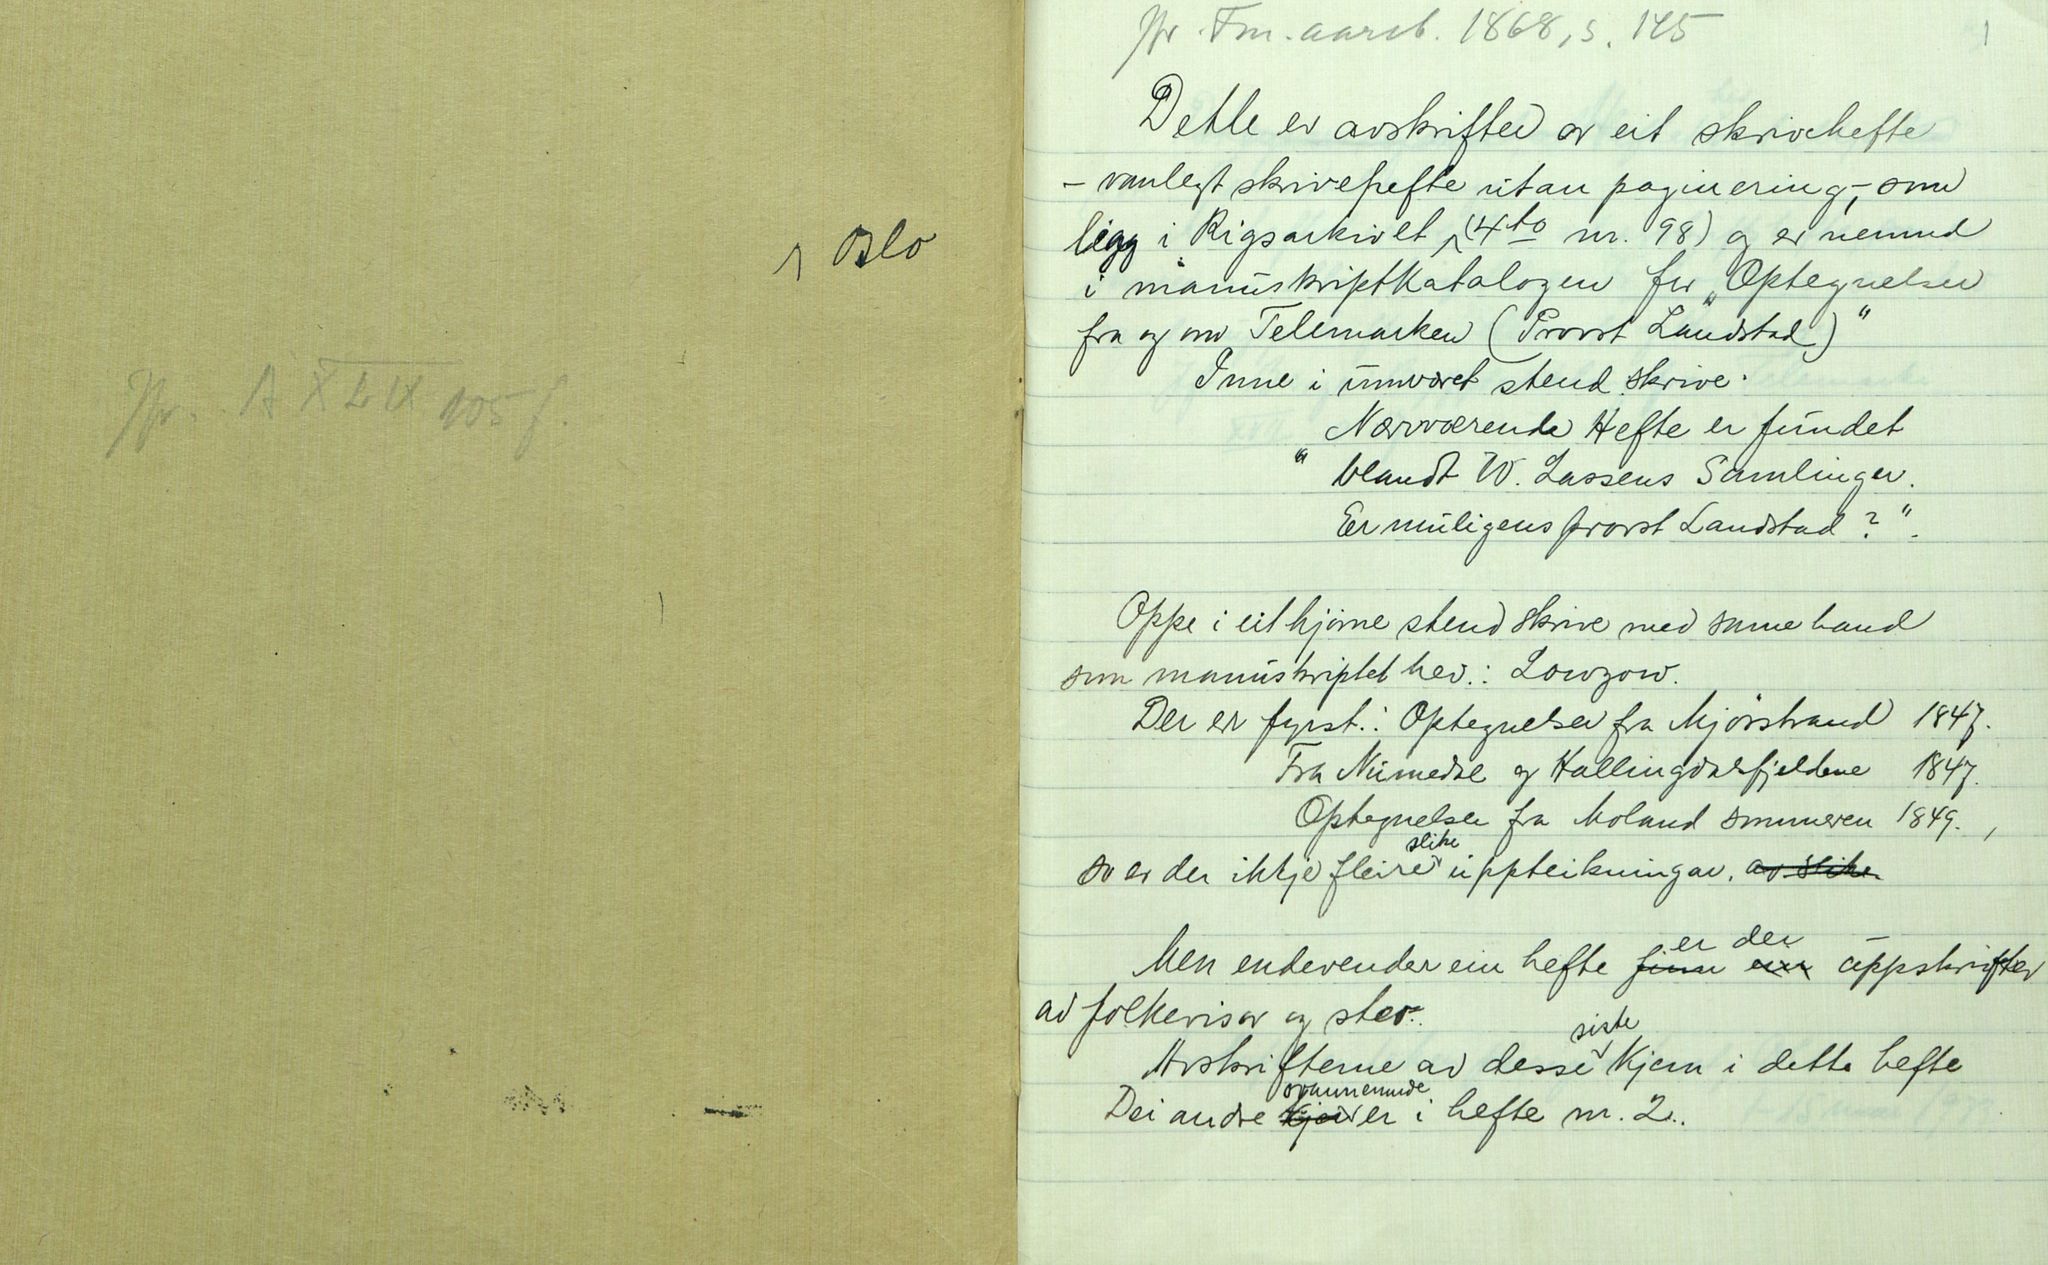 Oslo
Jfr. A XLIX 105 f.
Jfr. Fm. aarsb. 1868, s. 145
1
Dette er avskrifter av eit skrivehefte
– vanlegt skrivehefte utan paginering, – som
ligg i Rigsarkivet (4to nr. 98) og er nemnd
i manuskriptkatalogen for „Optegnelser
fra og om Telemarken (Provst Landstad)"
Inne i umvøret stend skrive.
Nærværende Hefte er fundet
" blandt W. Lassens Samlinger.
Er muligens provst Landstad?".
Oppe i eit hjørne stend skrive med same hand
som manuskriptet hev.: Lowzow.
Der er fyrst.: Optegnelser fra Mjösstrand 1847.
Fra Numedal og Hallingdalsfjeldene 1847.
Optegnelser fra Moland sommeren 1849.,
slike
so er der ikkje fleire uppteikningar. av slike
er der
Men endevender ein hefte finn ein uppskrifter
av folkevisor og stev.
siste
Avskrifterne av desse kjem i dette hefte
ovannemnde
Dei andre er i hefte nr. 2.